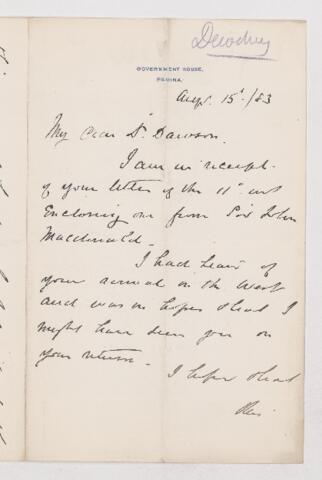 Dewdney
GOVERNMENT HOUSE,
REGINA.
Augt. 15t/83
My dear Dr. Dawson.
I am in receipt
of your letter of the 11t inst
Enclosing one from Sir John
Macdonald.
I had heard of
your arrival in the West
and was in hopes that I
might have seen you on
your return.
I hope that
this